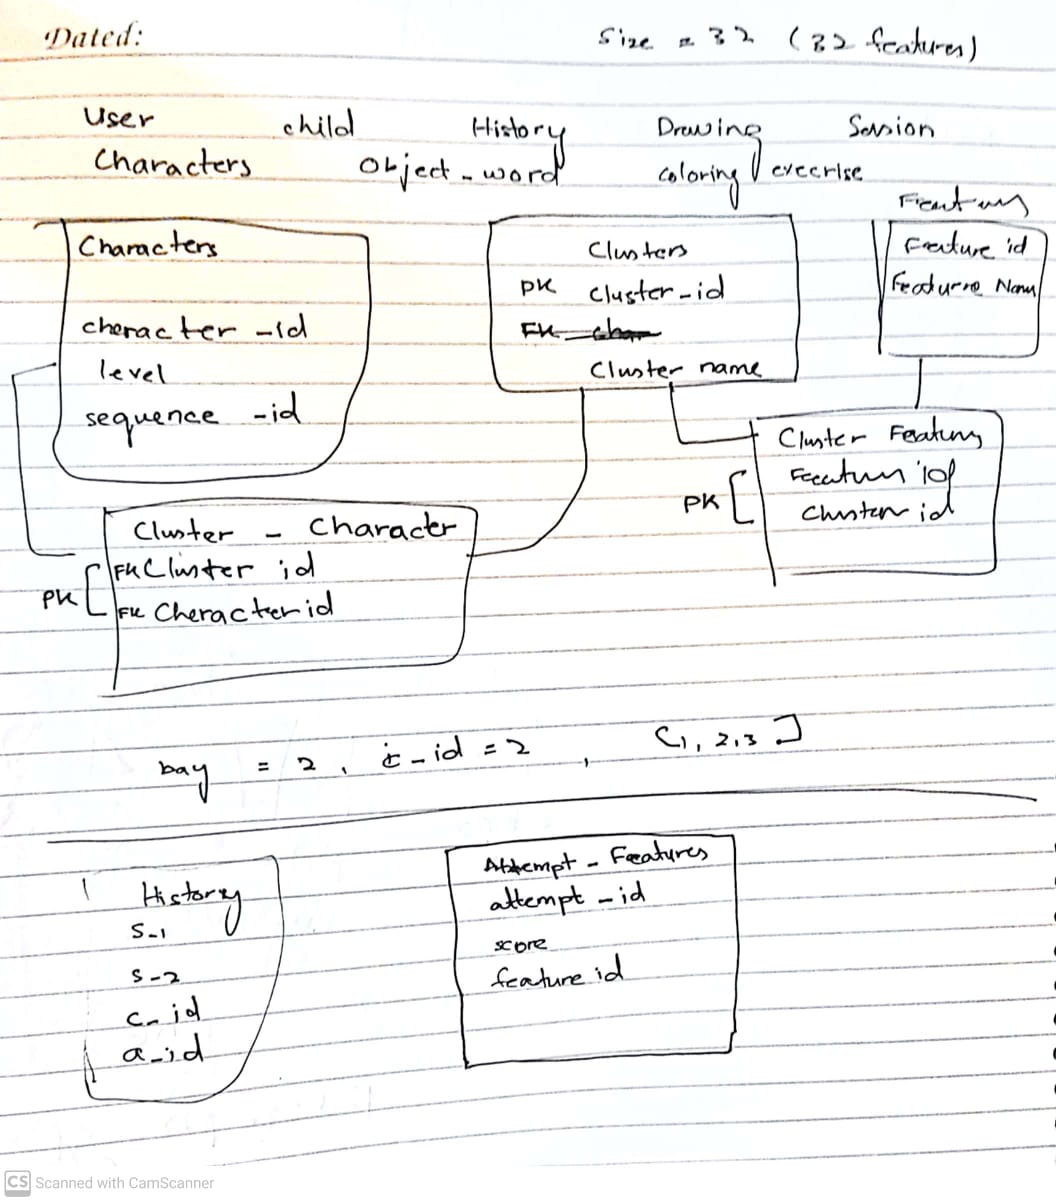 Dated:
Size = 32 (32 features)
User child History Drawing Session
Characters Object-word coloring execrise
Characters
character-id
level
sequence-id
Clusters
PK Cluster-id
FK char
Cluster name
Features
Feature id
Feature Name
Cluster Features
PK
Feature id
Cluster id
Cluster - Character
PK
FK Cluster id
FK Character id
bay = 2, c-id = 2, [1, 2, 3]
History
S-1
S-2
c-id
a-id
Attempt - Features
attempt-id
score
feature id
CS Scanned with CamScanner